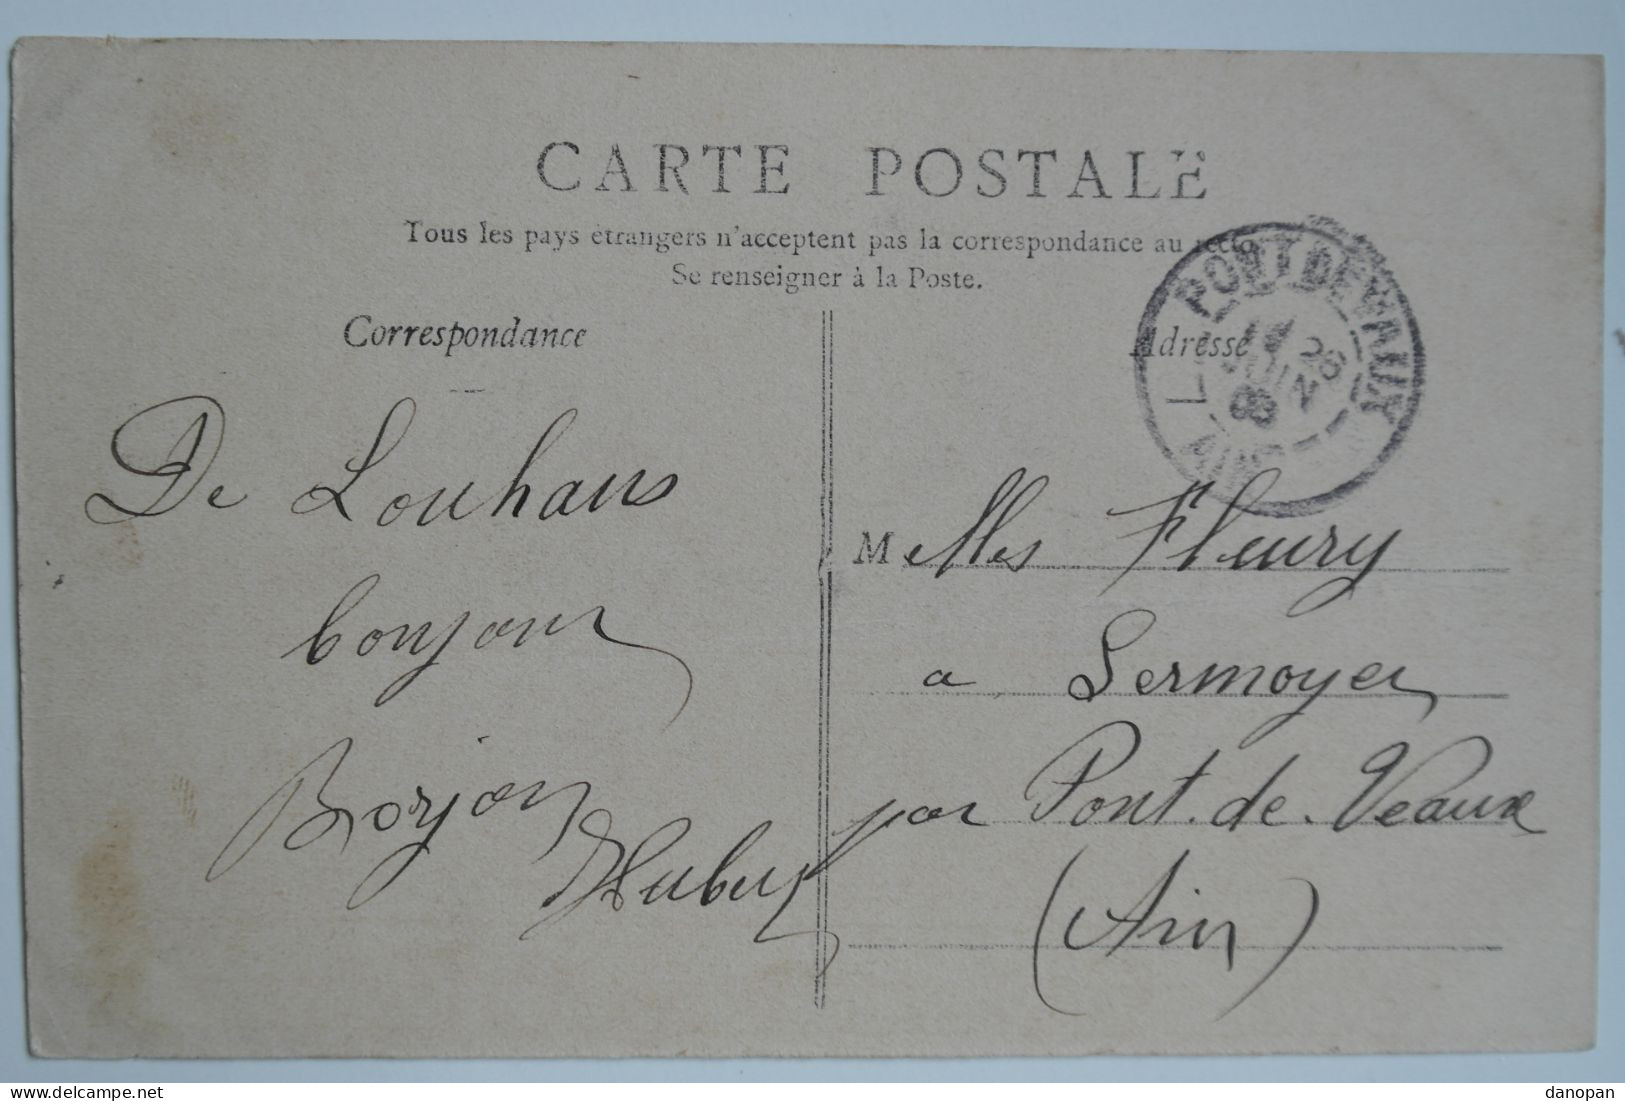 CARTE POSTALE
Tous les pays étrangers n'acceptent pas la correspondance au recto
Se renseigner à la Poste.
Correspondance
Adresse
PONT DE VAUX
28
JUIN
AIN
De Louhans
bonjour
Melles Fleury
a Sermoyer
par Pont. de. Veaux
(Ain)
danopan